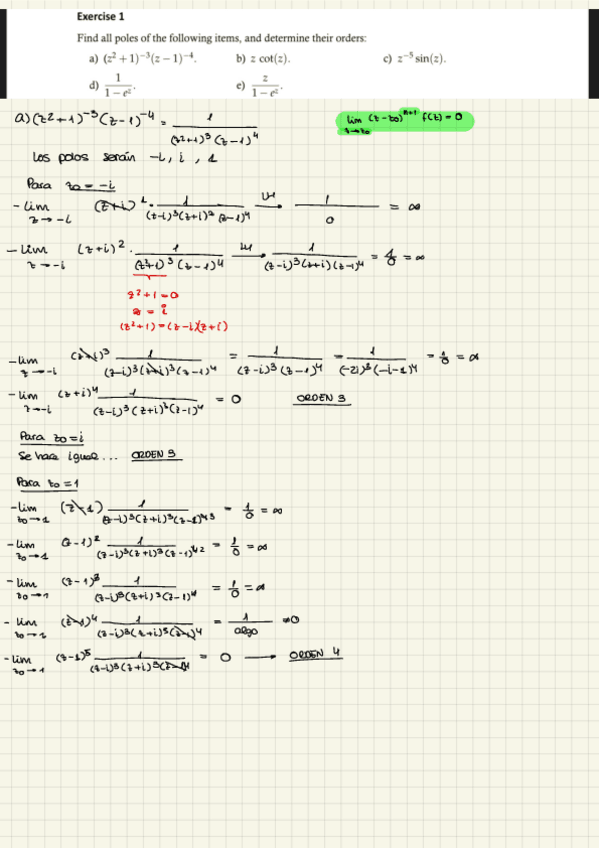 Exercise 1
Find all poles of the following items, and determine their orders:
a) (z² + 1)⁻³(z − 1)⁻⁴.
b) z cot(z).
c) z⁻⁵ sin(z).
d) 1/(1−eᶻ).
e) z/(1−eᶻ).
a) (z²+1)⁻³(z−1)⁻⁴ = 1/((z²+1)³(z−1)⁴)
lim z→z₀ (z−z₀)ⁿ⁺¹ f(z) = 0
Los polos serán −i, i, 1
Para z₀ = −i
− lim z→−i (z+i)¹ · 1/((z−i)³(z+i)³(z−1)⁴) → 1/0 = ∞
− lim z→−i (z+i)² · 1/((z²+1)³(z−1)⁴) → 1/((z−i)³(z+i)(z−1)⁴) = 1/0 = ∞
z²+1=0
z = i
(z²+1) = (z−i)(z+i)
− lim z→−i (z+i)³ 1/((z−i)³(z+i)³(z−1)⁴) = 1/((z−i)³(z−1)⁴) = 1/((−2i)³(−i−1)⁴) = 1/0 = ∞
− lim z→−i (z+i)⁴ 1/((z−i)³(z+i)³(z−1)⁴) = 0 ORDEN 3
Para z₀ = i
Se hace igual... ORDEN 3
Para z₀ = 1
− lim z₀→1 (z−1) 1/((z−i)³(z+i)³(z−1)⁴ ³) = 1/0 = ∞
− lim z₀→1 (z−1)² 1/((z−i)³(z+i)³(z−1)⁴ ²) = 1/0 = ∞
− lim z₀→1 (z−1)³ 1/((z−i)³(z+i)³(z−1)⁴) = 1/0 = ∞
− lim z₀→1 (z−1)⁴ 1/((z−i)³(z+i)³(z−1)⁴) = 1/algo ≠0
− lim z₀→1 (z−1)⁵ 1/((z−i)³(z+i)³(z−1)⁴) = 0 → ORDEN 4